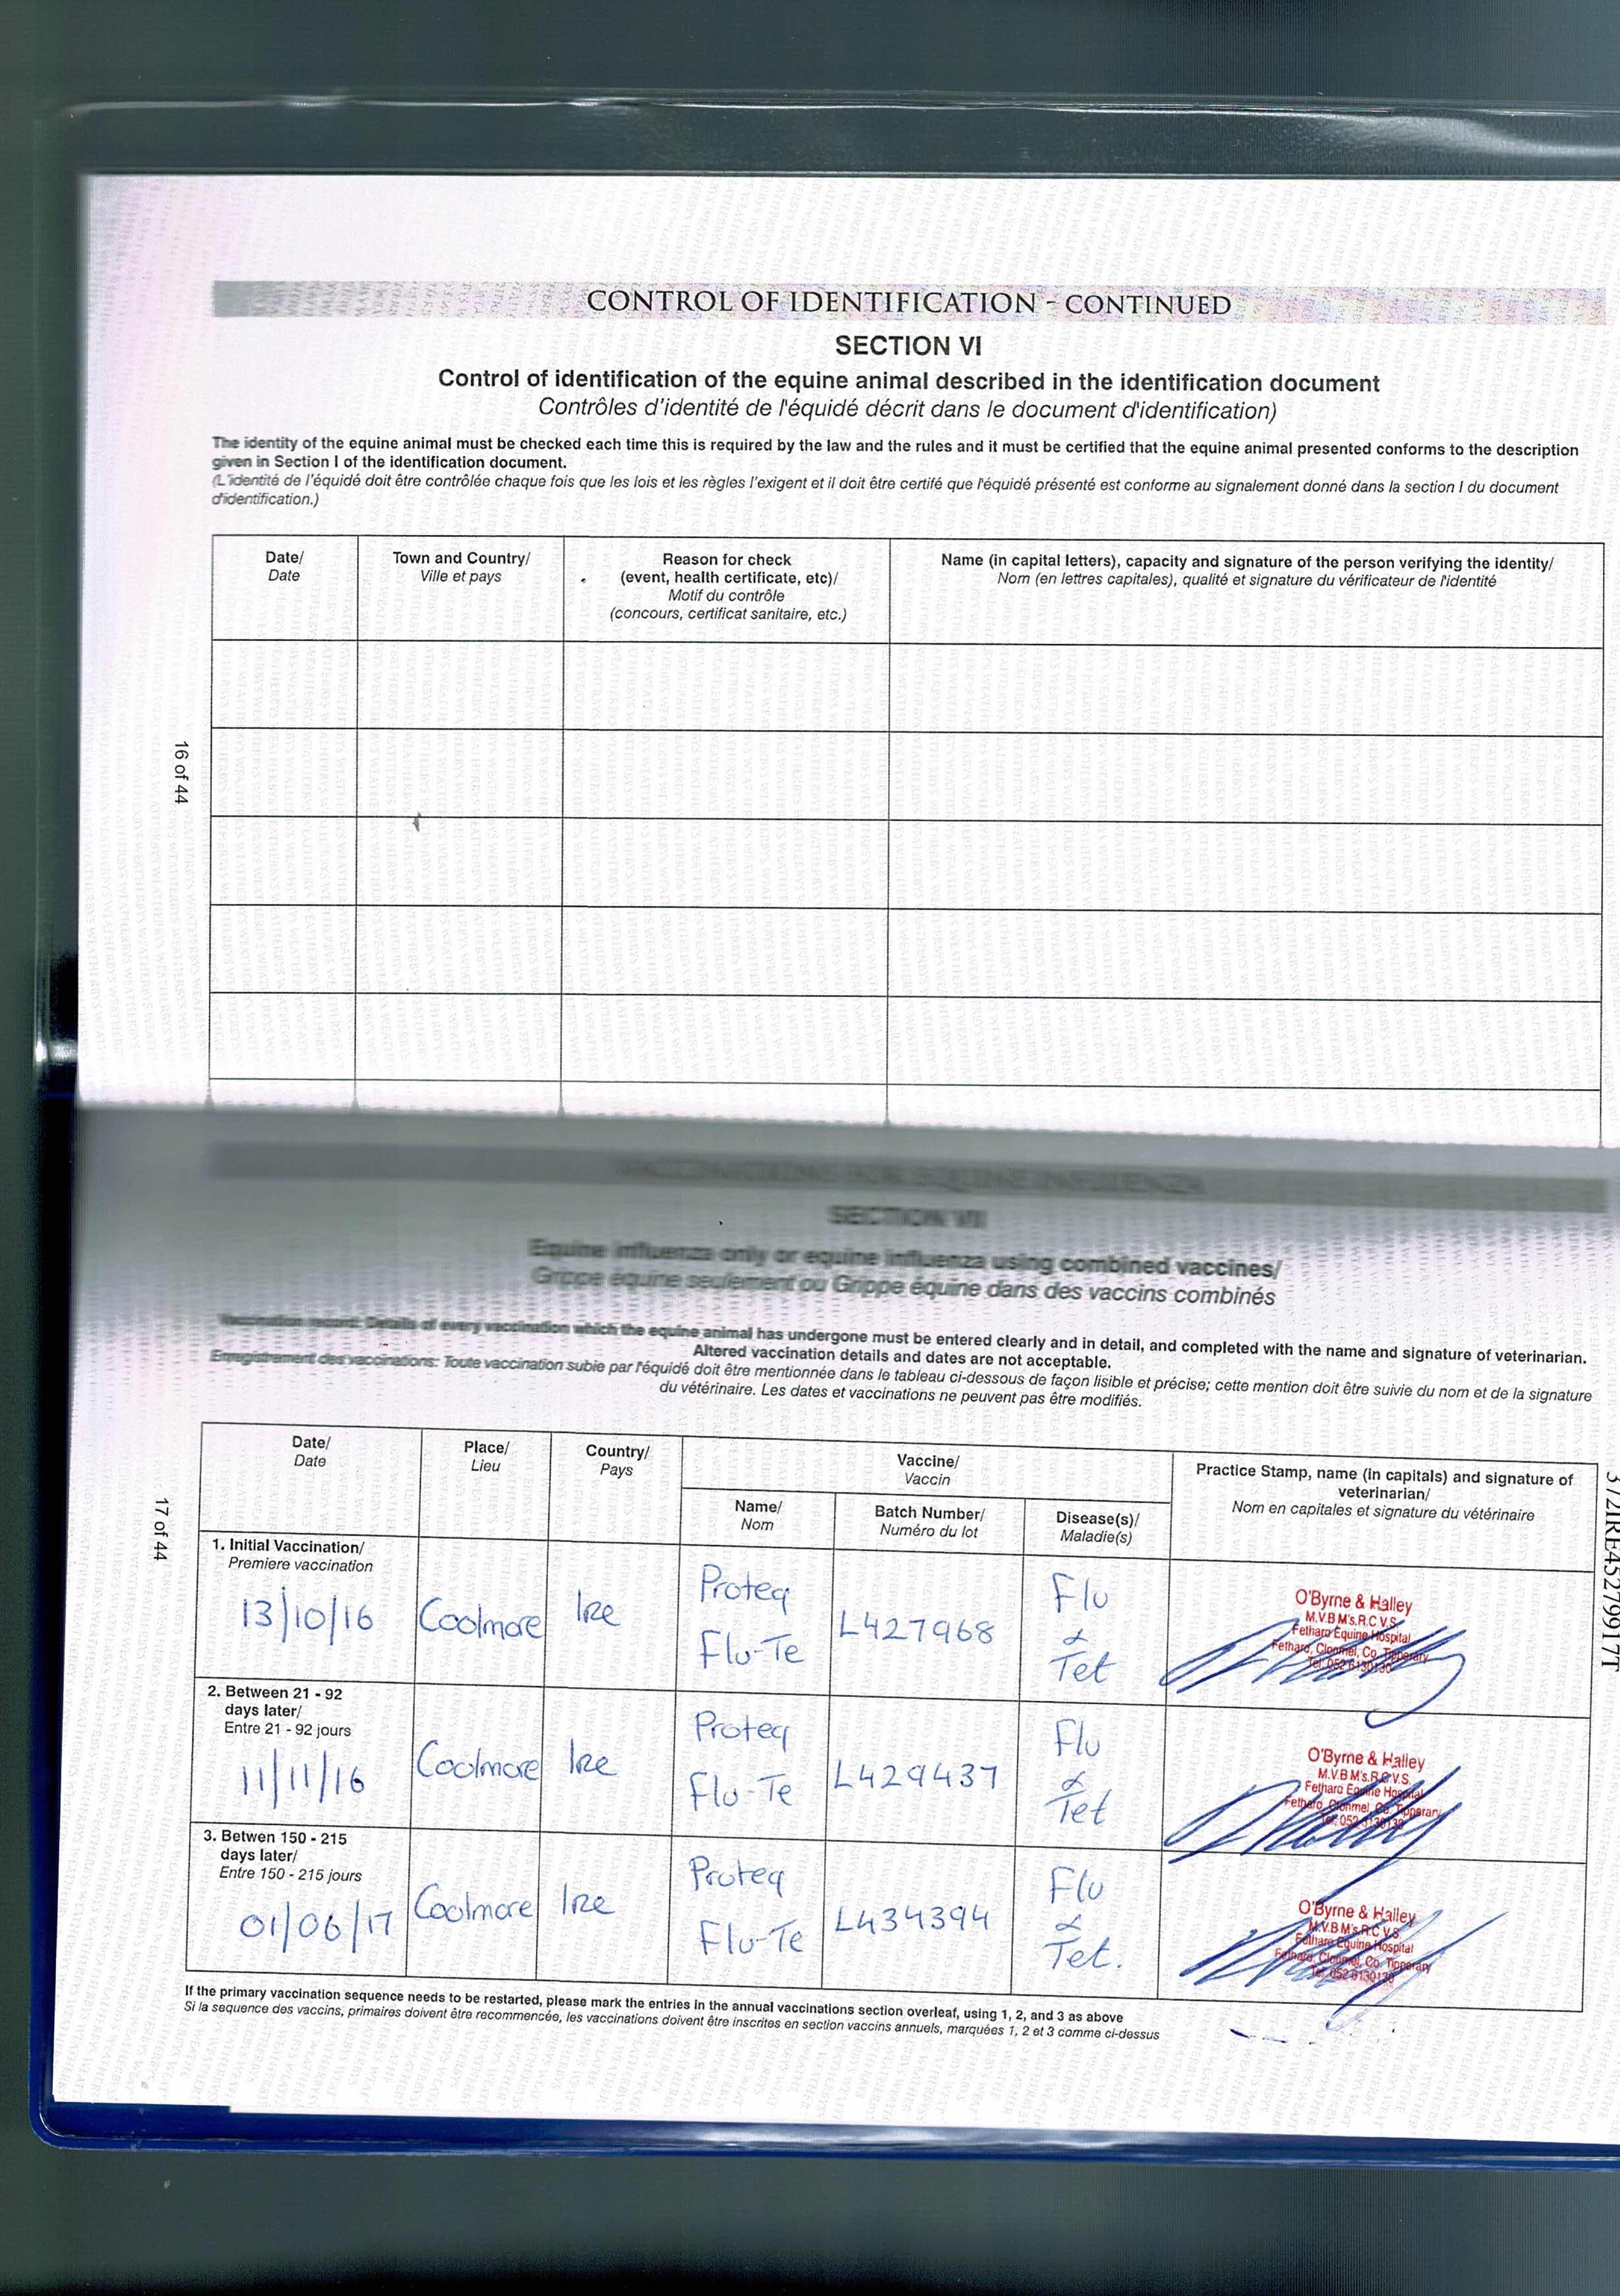 CONTROL OF IDENTIFICATION - CONTINUED
SECTION VI
Control of identification of the equine animal described in the identification document
Contrôles d'identité de l'équidé décrit dans le document d'identification)
The identity of the equine animal must be checked each time this is required by the law and the rules and it must be certified that the equine animal presented conforms to the description
given in Section I of the identification document.
(L'identité de l'équidé doit être contrôlée chaque fois que les lois et les règles l'exigent et il doit être certifé que l'équidé présenté est conforme au signalement donné dans la section I du document
d'identification.)
Date/
Date
Town and Country/
Ville et pays
Reason for check
(event, health certificate, etc)/
Motif du contrôle
(concours, certificat sanitaire, etc.)
Name (in capital letters), capacity and signature of the person verifying the identity/
Nom (en lettres capitales), qualité et signature du vérificateur de l'identité
16 of 44
VACCINATIONS FOR EQUINE INFLUENZA
SECTION VII
Equine influenza only or equine influenza using combined vaccines/
Grippe équine seulement ou Grippe équine dans des vaccins combinés
Vaccination record: Details of every vaccination which the equine animal has undergone must be entered clearly and in detail, and completed with the name and signature of veterinarian.
Altered vaccination details and dates are not acceptable.
Enregistrement des vaccinations: Toute vaccination subie par l'équidé doit être mentionnée dans le tableau ci-dessous de façon lisible et précise; cette mention doit être suivie du nom et de la signature
du vétérinaire. Les dates et vaccinations ne peuvent pas être modifiés.
Date/
Date
Place/
Lieu
Country/
Pays
Vaccine/
Vaccin
Name/
Nom
Batch Number/
Numéro du lot
Disease(s)/
Maladie(s)
Practice Stamp, name (in capitals) and signature of
veterinarian/
Nom en capitales et signature du vétérinaire
17 of 44
372IRE45279917T
1. Initial Vaccination/
Premiere vaccination
13/10/16
Coolmore
Ire
Proteq
Flu-Te
L427968
Flu
&
Tet
O'Byrne & Halley
M.V.B M's.R.C.V.S.
Fethard Equine Hospital
Fethard, Clonmel, Co. Tipperary
Tel: 052 6130130
2. Between 21 - 92
days later/
Entre 21 - 92 jours
11/11/16
Coolmore
Ire
Proteq
Flu-Te
L429437
Flu
&
Tet
O'Byrne & Halley
M.V.B M's.R.C.V.S.
Fethard Equine Hospital
Fethard, Clonmel, Co. Tipperary
Tel: 052 6130130
3. Betwen 150 - 215
days later/
Entre 150 - 215 jours
01/06/17
Coolmore
Ire
Proteq
Flu-Te
L434394
Flu
&
Tet.
O'Byrne & Halley
M.V.B M's.R.C.V.S.
Fethard Equine Hospital
Fethard, Clonmel, Co. Tipperary
Tel: 052 6130130
If the primary vaccination sequence needs to be restarted, please mark the entries in the annual vaccinations section overleaf, using 1, 2, and 3 as above
Si la sequence des vaccins, primaires doivent être recommencée, les vaccinations doivent être inscrites en section vaccins annuels, marquées 1, 2 et 3 comme ci-dessus